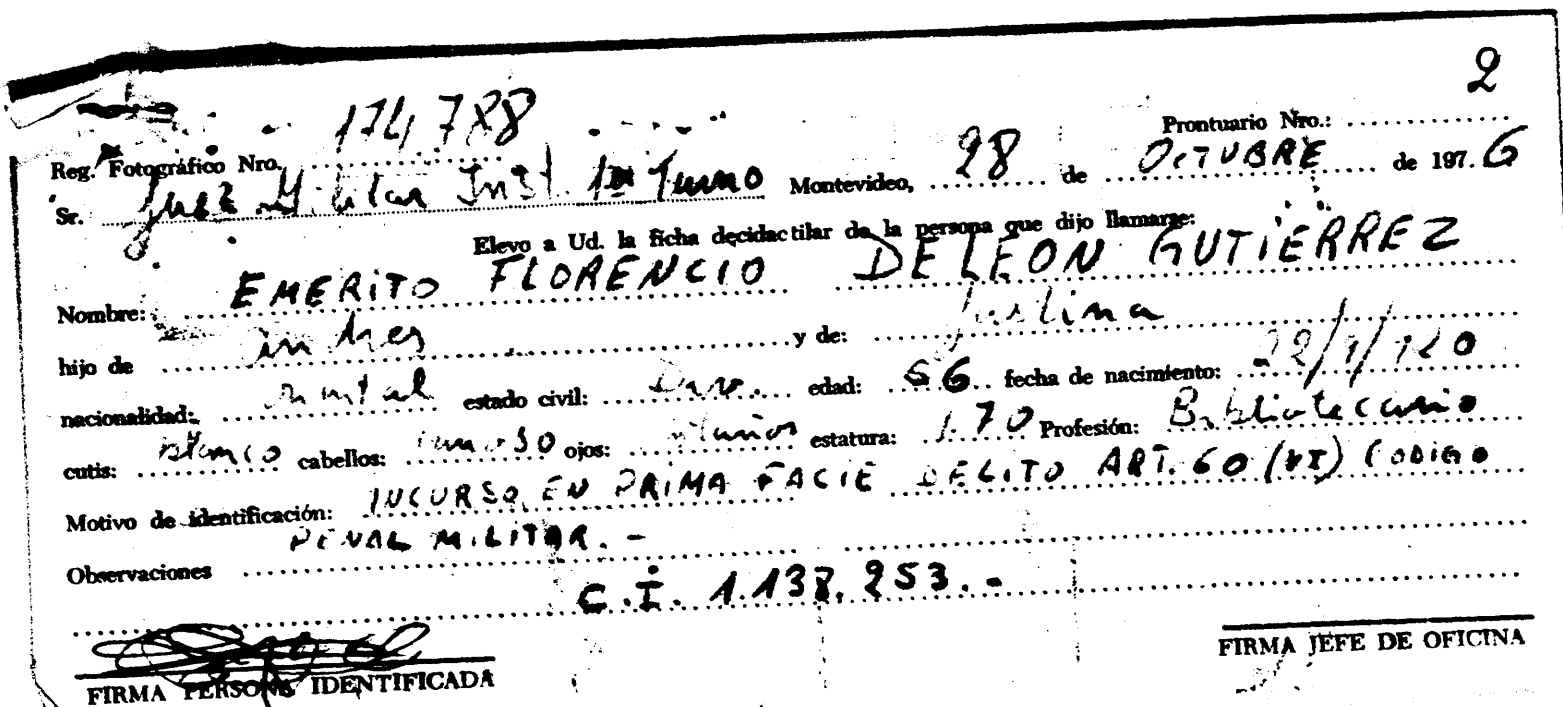 2
Reg. Fotográfico Nro. 174,788 Prontuario Nro.:
Sr. Juez Militar Inst. 1er Turno Montevideo, 28 de OCTUBRE de 1976
Elevo a Ud. la ficha decidactilar de la persona que dijo llamarse:
Nombre: EMERITO FLORENCIO DE LEON GUTIERREZ
hijo de y de:
nacionalidad: estado civil: edad: 56 fecha de nacimiento:
cutis: blanco cabellos: canoso ojos: estatura: 1.70 Profesión: Bibliotecario
Motivo de identificación: INCURSO EN PRIMA FACIE DELITO ART. 60 (VI) CODIGO
PENAL MILITAR.-
Observaciones
C.I. 1.138.253.-
FIRMA PERSONA IDENTIFICADA
FIRMA JEFE DE OFICINA